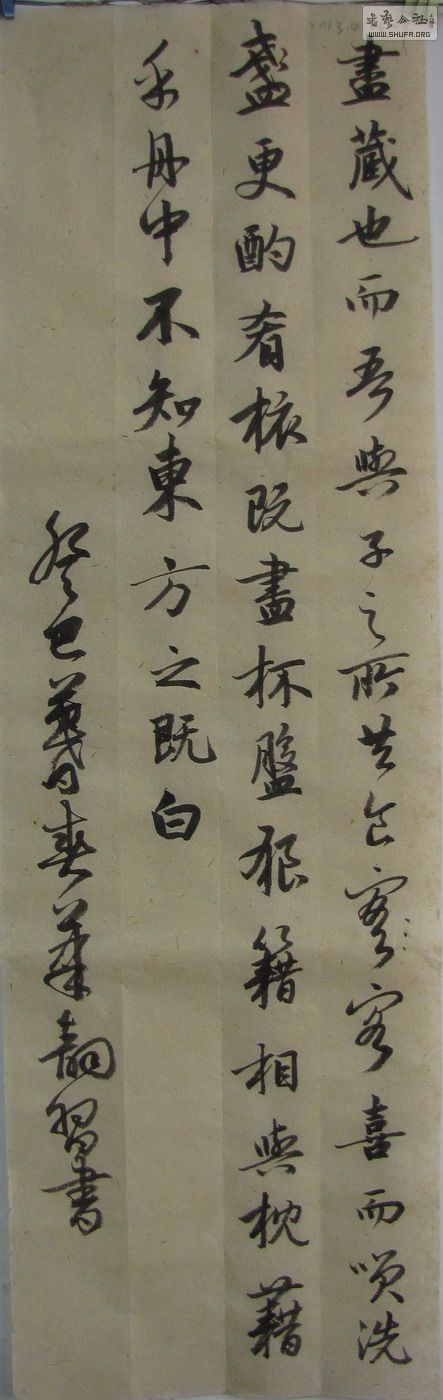 盡藏也而吾與子之所共食客客喜而咲洗
盞更酌肴核既盡杯盤狼籍相與枕藉
乎舟中不知東方之既白
癸巳暮春習書
書藝公社
WWW.SHUFA.ORG
2013.